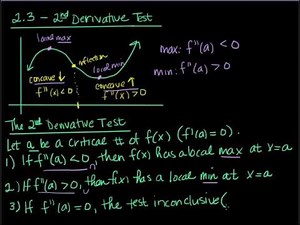 2.3 - 2nd Derivative Test
local max
inflection
local min
concave ↓
f''(x) < 0
concave ↑
f''(x) > 0
max: f''(a) < 0
min: f''(a) > 0
The 2nd Derivative Test
Let a be a critical # of f(x) (f'(a)=0).
1) If f''(a) < 0, then f(x) has a local max at x=a
2) If f''(a) > 0, then f(x) has a local min at x=a
3) If f''(a) = 0, the test inconclusive(